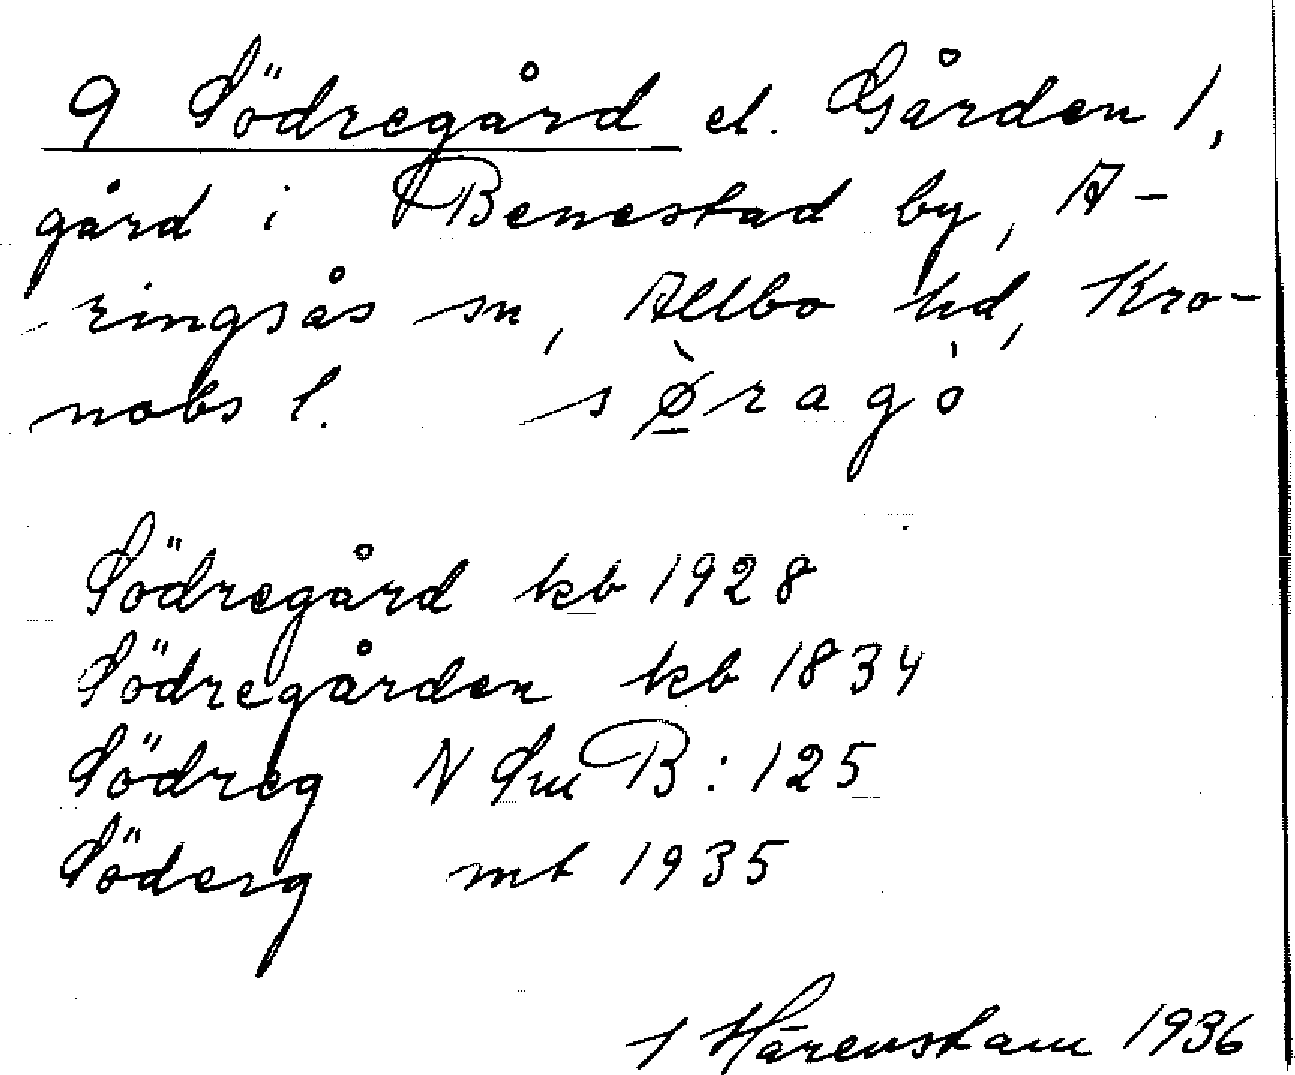 9 Södregård el. Gården 1,
gård i Benestad by, A-
ringsås sn, Allbo hd, Kro-
nobs l. sø̠̀ragȯ̀
Södregård kb 1928
Södregården kb 1834
Södreg N Sm B: 125
Söderg mt 1935
Härenstam 1936